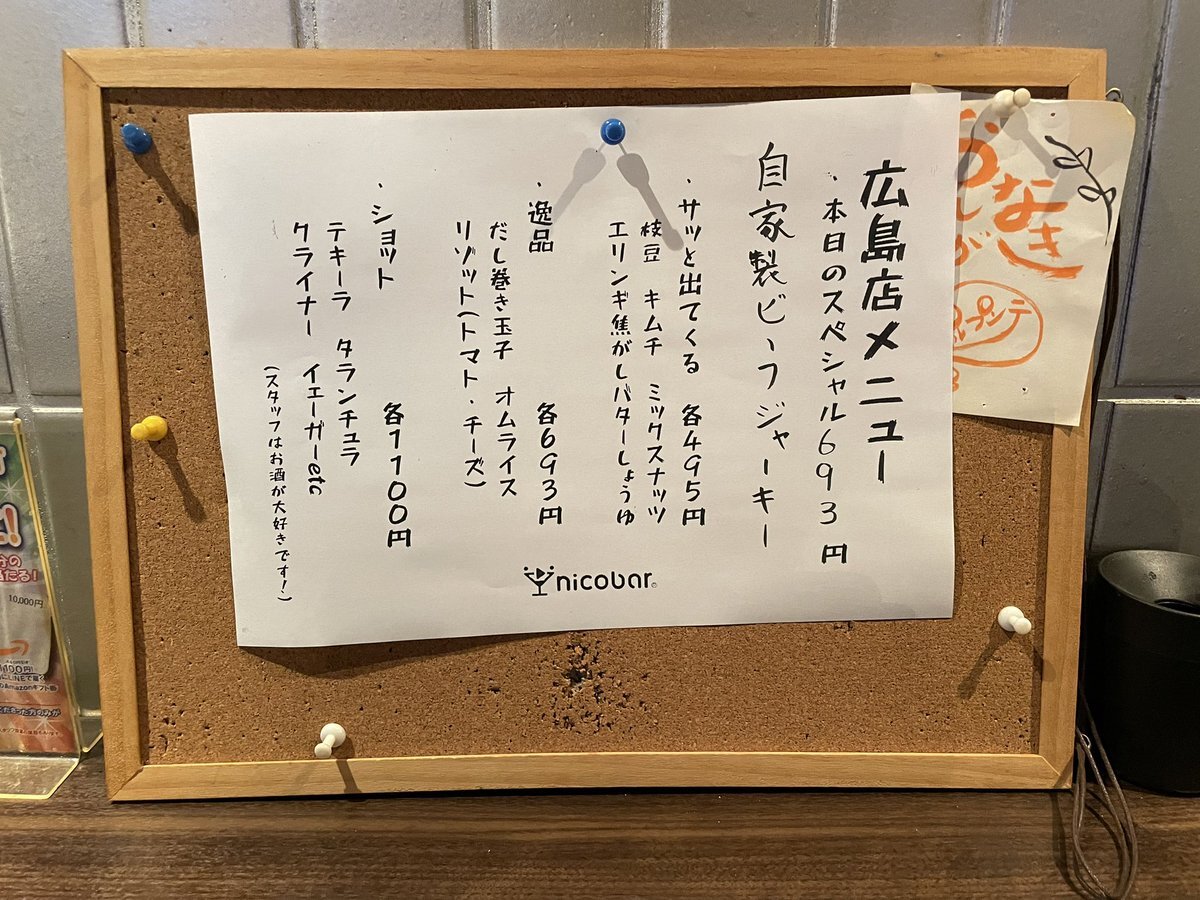 広島店メニュー
・本日のスペシャル693円
自家製ビーフジャーキー
・サッと出てくる 各495円
枝豆 キムチ ミックスナッツ
エリンギ焦がしバターしょうゆ
・逸品 各693円
だし巻き玉子 オムライス
リゾット(トマト・チーズ)
・ショット 各1100円
テキーラ タランチュラ
クライナー イエーガーetc
(スタッフはお酒が大好きです!)
nicobar
10,000円